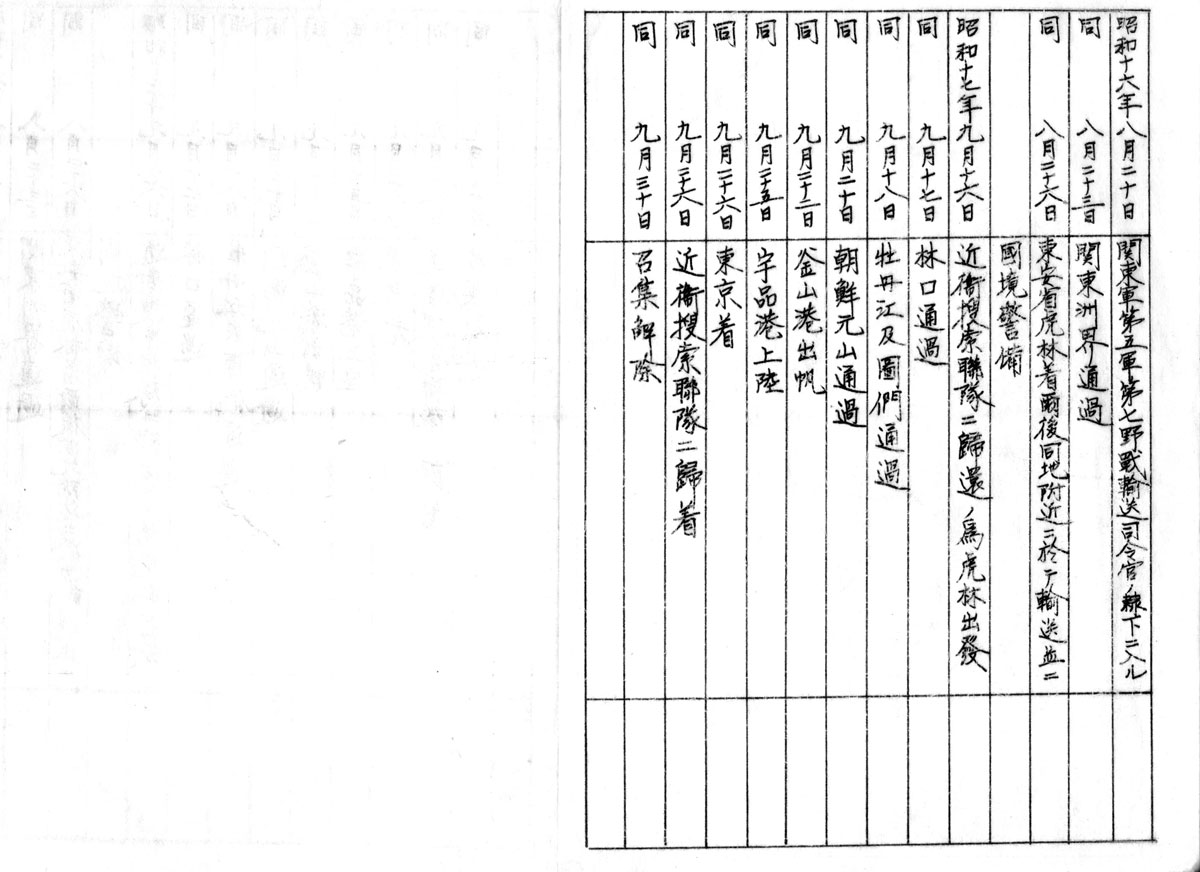 昭和十六年八月二十日 関東軍第五軍第七野戰輸送司令官ノ隷下ニ入ル
同 八月二十三日 関東洲界通過
同 八月二十六日 東安省虎林着爾後同地附近ニ於テ輸送並ニ
國境警備
昭和十七年九月十六日 近衛搜索聯隊ニ歸還ノ爲虎林出發
同 九月十七日 林口通過
同 九月十八日 牡丹江及圖們通過
同 九月二十日 朝鮮元山通過
同 九月二十二日 釜山港出帆
同 九月二十五日 宇品港上陸
同 九月二十六日 東京着
同 九月二十六日 近衛搜索聯隊ニ歸着
同 九月三十日 召集解除